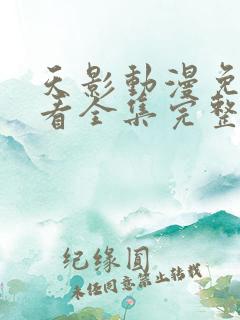 天影動漫免
看全集完整
纪缘圆
未经同意禁止转载